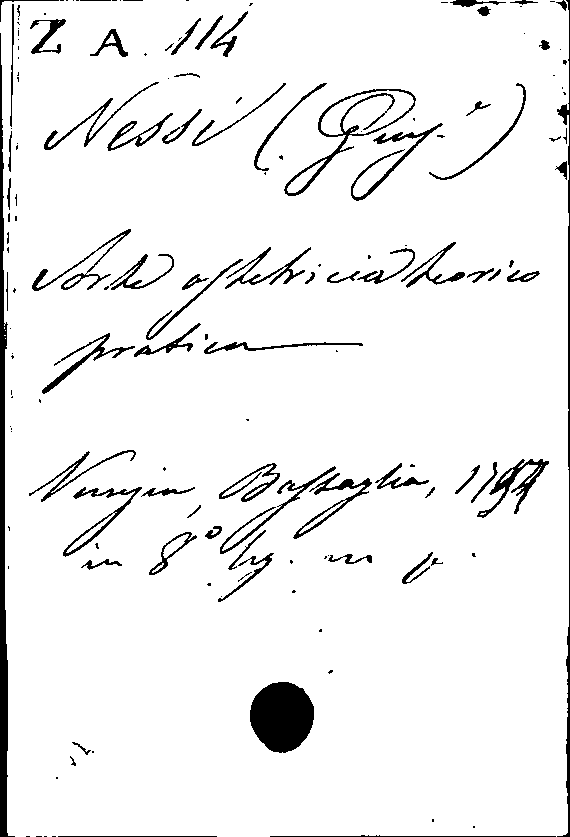 Z A. 114
Nessi (Giuse.e)
Arte ostetricia teorico
pratica
Venezia, Bassaglia, 1797
in 8° lg. in p.